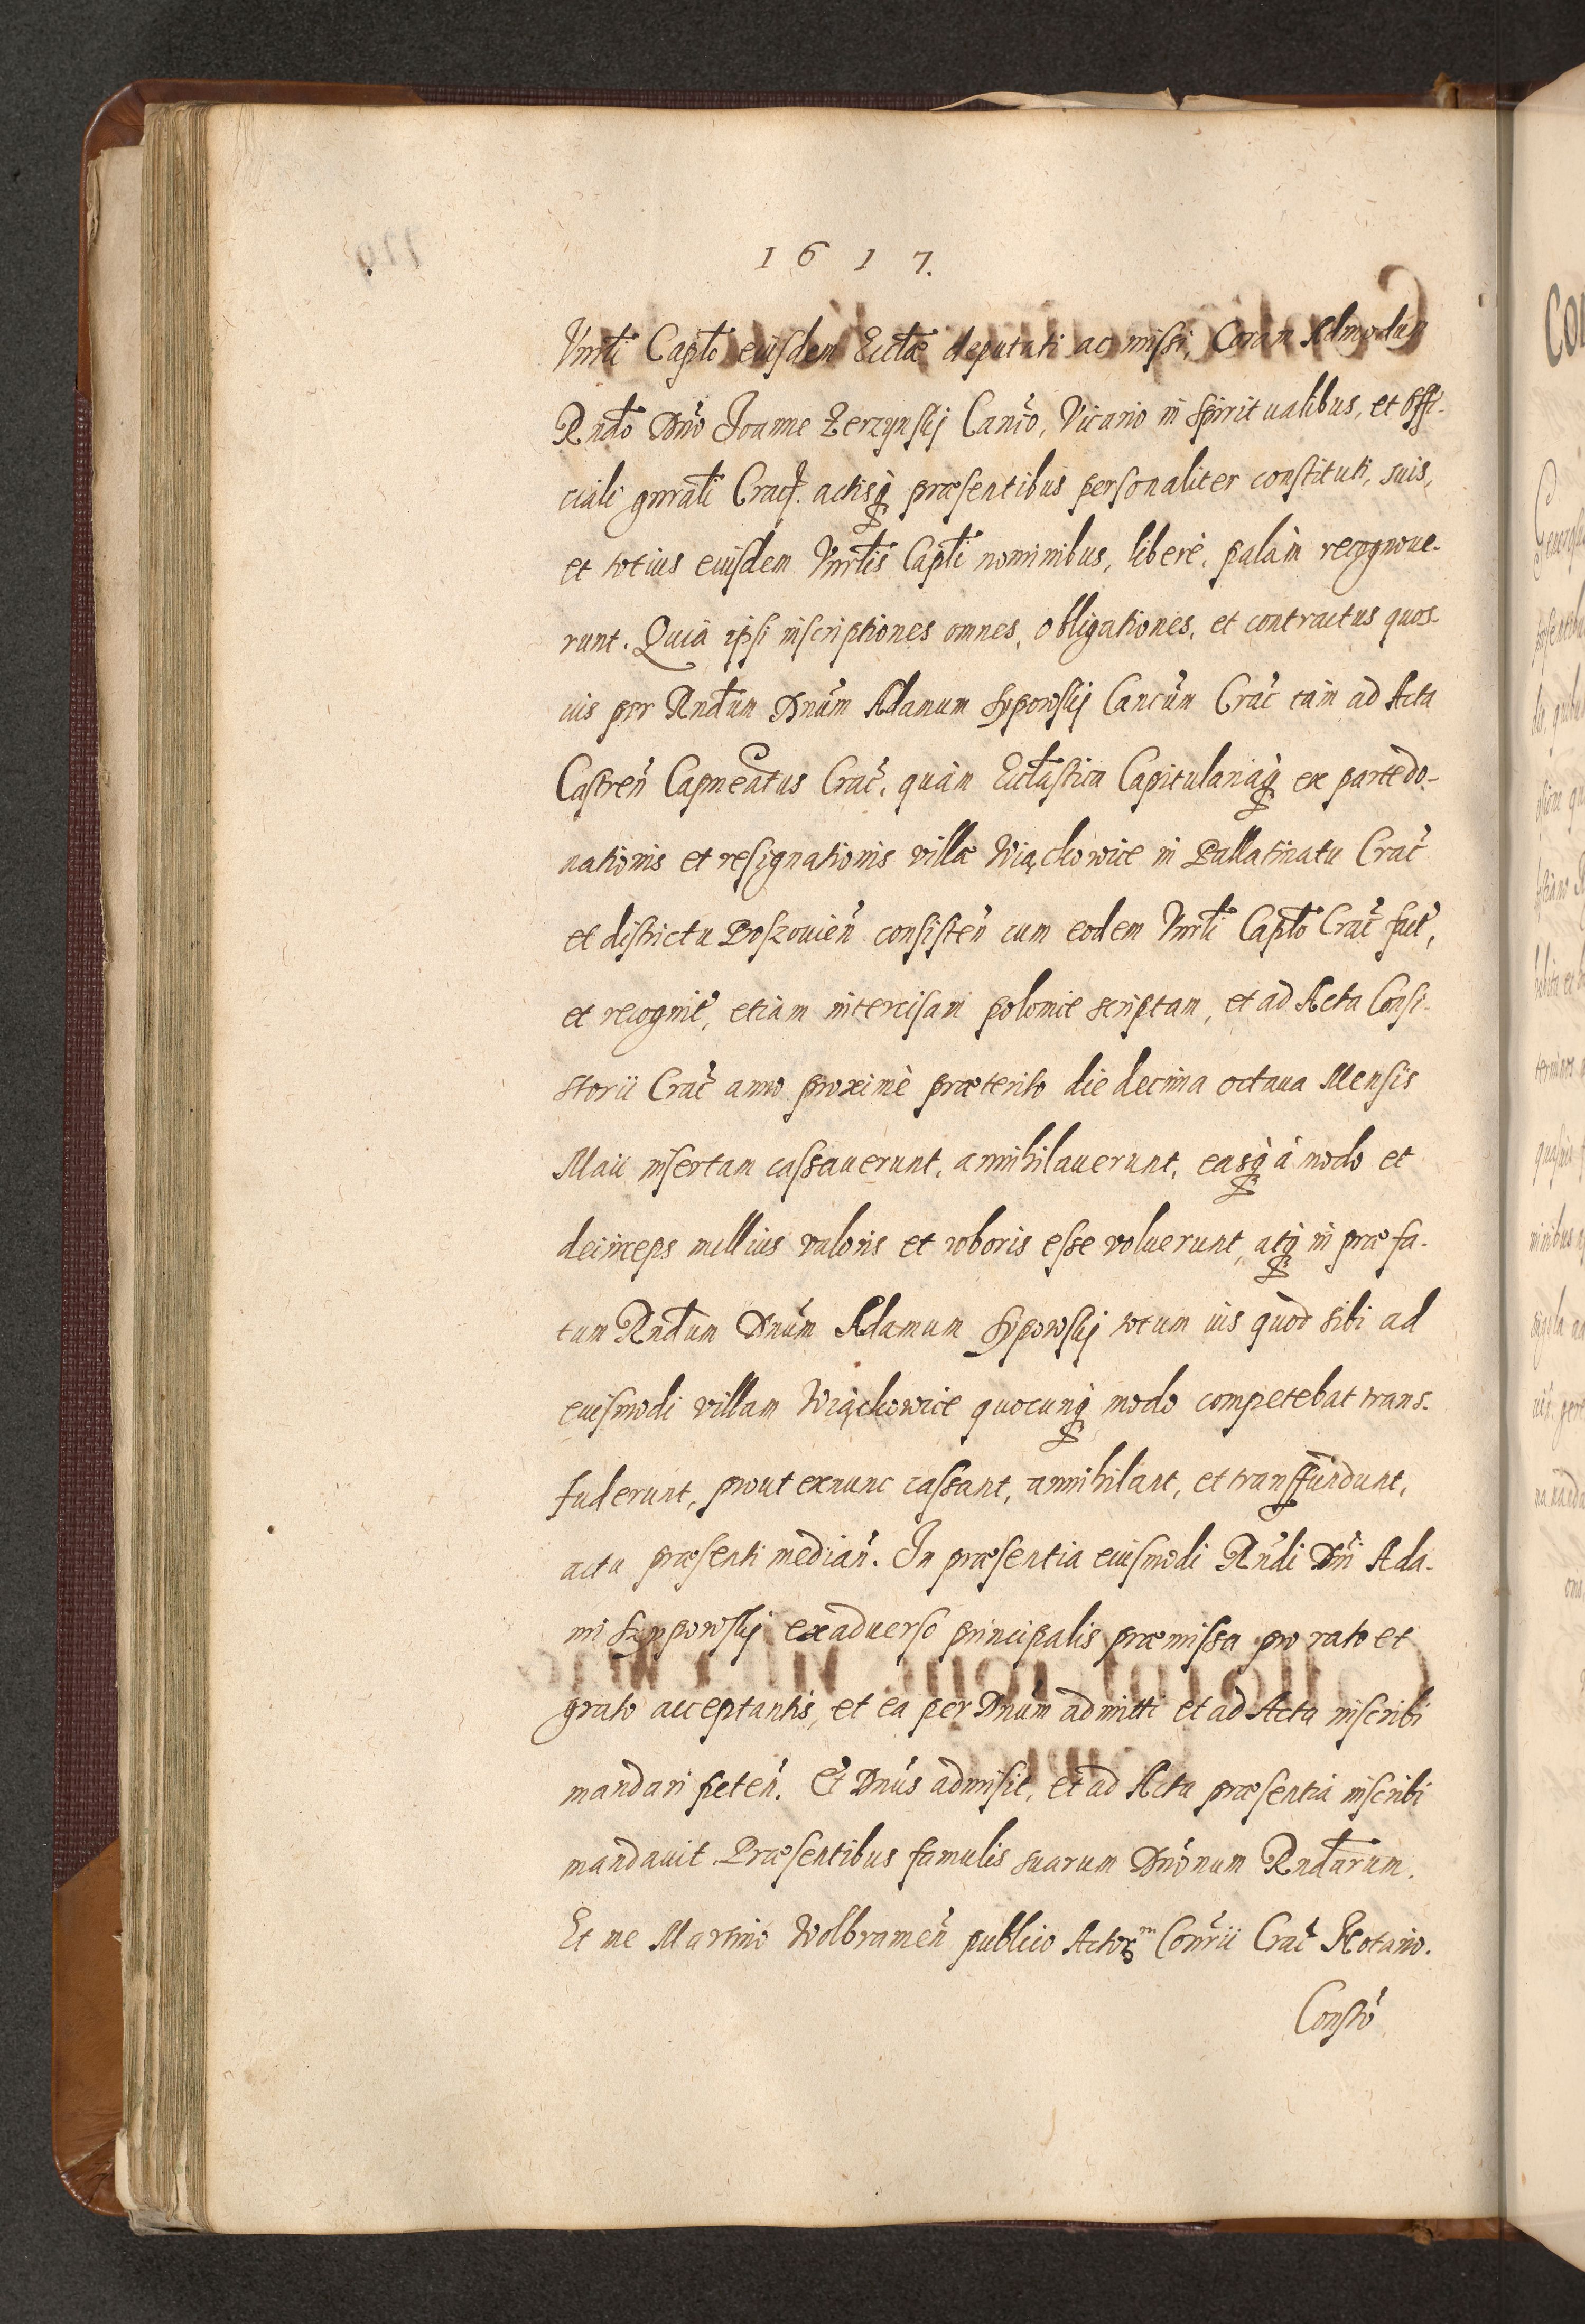 1617.
Vnrli Caplo eiusdem Ecclæ deputati ac missi, Coram Admodum
Rndo Dno Joanne Zerzynskij Canco, Vicario in spiritualibus, et offi-
ciali gnrali Crac. actisq præsentibus personaliter constituti, suis,
et totius eiusdem Vnrlis Capli nominibus, liberè, palàm recognoue-
runt. Quia ipsi inscriptiones omnes, obligationes, et contractus quos-
uis per Rndum Dnum Adamum Sypowskij Cancum Crac tam ad Acta
Castren Capneatus Crac, quàm Ecclastica Capitulariaq ex parte do-
nationis et resignationis villæ Wiąckowice in Pallatinatu Crac
et districtu Proszouien consisten cum eodem Vnrli Caplo Crac fact,
et recognit, etiam intercisam polonice scriptam, et ad Acta Consi-
storii Crac anno proximè præterito die decima octaua Mensis
Maii insertam cassauerunt, annihilauerunt, easq à modo et
deinceps nullius valoris et roboris esse voluerunt, atq in præfa-
tum Rndum Dnum Adamum Sypowskij totum ius quod sibi ad
eiusmodi villam Wiąckowice quocunq modo competebat trans-
fuderunt, prout exnunc cassant, annihilant, et transffundunt,
actu præsenti median. In præsentia eiusmodi Rndi Dni Ada-
mi Szypowskij ex aduerso principalis præmissa pro rato et
grato acceptantis, et ea per Dnum admitti et ad Acta inscribi
mandari peten. Et Dnus admisit, et ad Acta præsentia inscribi
mandauit. Præsentibus famulis suarum Dnonum Rndarum.
Et me Martino Wolbramen publico Actorm Conrii Crac Notario.
Consto